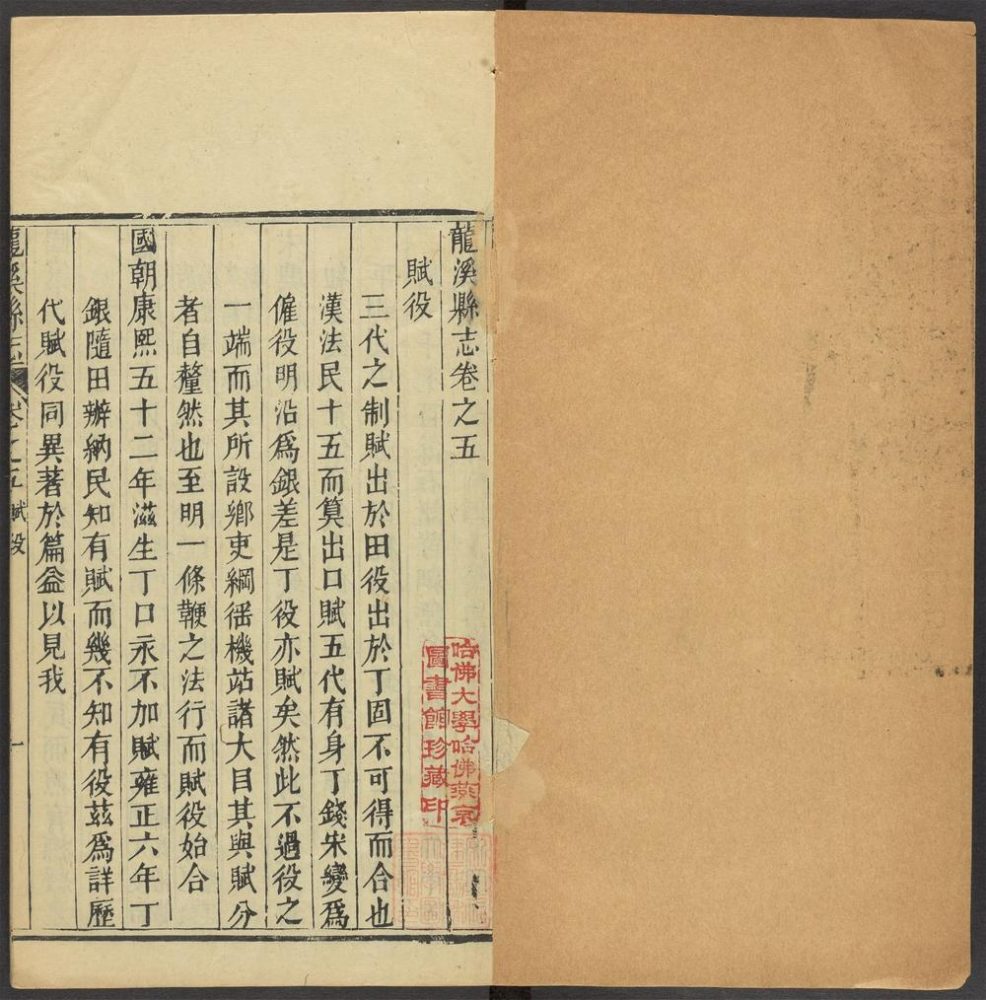 龍溪縣志卷之五
賦役
三代之制賦出於田役出於丁固不可得而合也
漢法民十五而算出口賦五代有身丁錢宋變爲
僱役明沿爲銀差是丁役亦賦矣然此不過役之
一端而其所設鄉吏綱徭機站諸大目其與賦分
者自釐然也至明一條鞭之法行而賦役始合
國朝康熙五十二年滋生丁口永不加賦雍正六年丁
銀隨田辦納民知有賦而幾不知有役茲爲詳歷
代賦役同異著於篇益以見我
龍溪縣志 卷之五 賦役 一
哈佛大學哈佛燕京
圖書館珍藏印